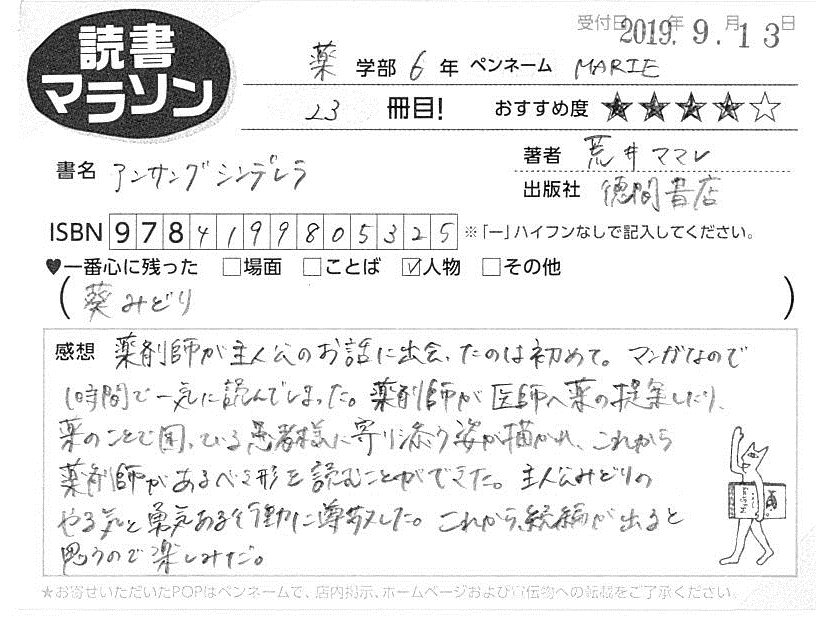 読書
マラソン
受付日 2019年 9.月13日
薬 学部 6 年 ペンネーム MARIE
23 冊目! おすすめ度 ★★★★☆
書名 アンサングシンデレラ
著者 荒井ママレ
出版社 徳間書店
ISBN 9784199805325 ※「ー」ハイフンなしで記入してください。
♥一番心に残った □場面 □ことば ☑人物 □その他
(葵みどり)
感想 薬剤師が主人公のお話に出会ったのは初めて。マンガなので
1時間で一気に読んでしまった。薬剤師が医師へ薬の提案したり、
薬のことで困っている患者様に寄り添う姿が描かれ、これから
薬剤師があるべき形を読むことができた。主人公みどりの
やる気と勇気ある行動に尊敬した。これから続編が出ると
思うので楽しみだ。
★お寄せいただいたPOPはペンネームで、店内掲示、ホームページおよび宣伝物への転載をご了承ください。